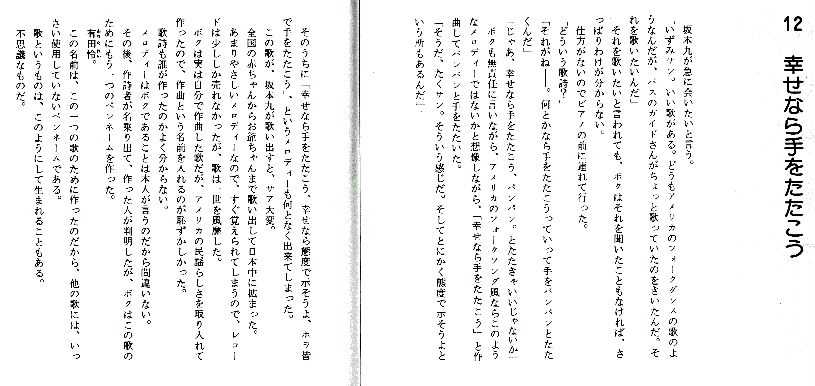 12 幸せなら手をたたこう
坂本九が急に会いたいと言う。
「いずみサン、いい歌がある。どうもアメリカのフォークダンスの歌のよ
うなんだが、バスのガイドさんがちょっと歌っていたのをきいたんだ。そ
れを歌いたいんだ」
それを歌いたいと言われても、ボクはそれを聞いたこともなければ、さ
っぱりわけが分からない。
仕方がないのでピアノの前に連れて行った。
「どういう歌詩？」
「それがねー。何とかなら手をたたこうっていって手をパンパンとたた
くんだ」
「じゃあ、幸せなら手をたたこう、パンパン。とたたきゃいいじゃないか」
ボクも無責任に言いながら、アメリカのフォークソング風ならこのよう
なメロディーではないかと想像しながら、「幸せなら手をたたこう」と作
曲してパンパンと手をたたいた。
「そうだ、たくサン。そういう感じだ。そしてとにかく態度で示そうよと
いう所もあるんだ」
そのうちに「幸せなら手をたたこう、幸せなら態度で示そうよ、ホラ皆
で手をたたこう」、というメロディーも何となく出来てしまった。
この歌が、坂本九が歌い出すと、サア大変。
全国の赤ちゃんからお爺ちゃんまで歌い出して日本中に拡まった。
あまりやさしいメロディーなので、すぐ覚えられてしまうので、レコー
ドは少ししか売れなかったが、歌は一世を風靡した。
ボクは実は自分で作曲した歌だが、アメリカの民謡らしさを取り入れて
作ったので、作曲という名前を入れるのが恥ずかしかった。
歌詩も誰が作ったのかよく分からない。
メロディーはボクであることは本人が言うのだから間違いない。
その後、作詩者が名乗り出て、作った人が判明したが、ボクはこの歌の
ためにもう一つのペンネームを作った。
有田怜。
この名前は、この一つの歌のために作ったのだから、他の歌には、いっ
さい使用していないペンネームである。
歌というものは、このようにして生まれることもある。
不思議なものだ。